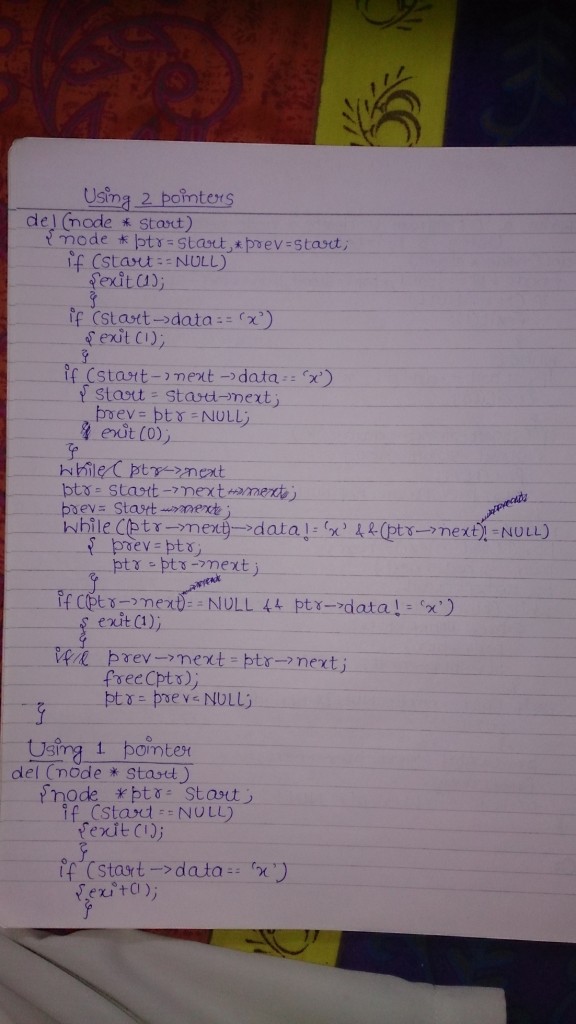 Using 2 pointers
del (node * start)
{ node * ptr = start, * prev = start;
if (start == NULL)
{exit(1);
}
if (start->data == 'x')
{ exit(1);
}
if (start->next->data == 'x')
{ start = start->next;
prev = ptr = NULL;
exit(0);
}
while( ptr->next
ptr = start->next->next;
prev = start->next;
while((ptr->next)->data != 'x' && (ptr->next) != NULL)
{ prev = ptr;
ptr = ptr->next;
}
if((ptr->next) == NULL && ptr->data != 'x')
{ exit(1);
}
prev->next = ptr->next;
free(ptr);
ptr = prev = NULL;
}
Using 1 pointer
del (node * start)
{node *ptr = start;
if (start == NULL)
{exit(1);
}
if (start->data == 'x')
{exit(1);
}